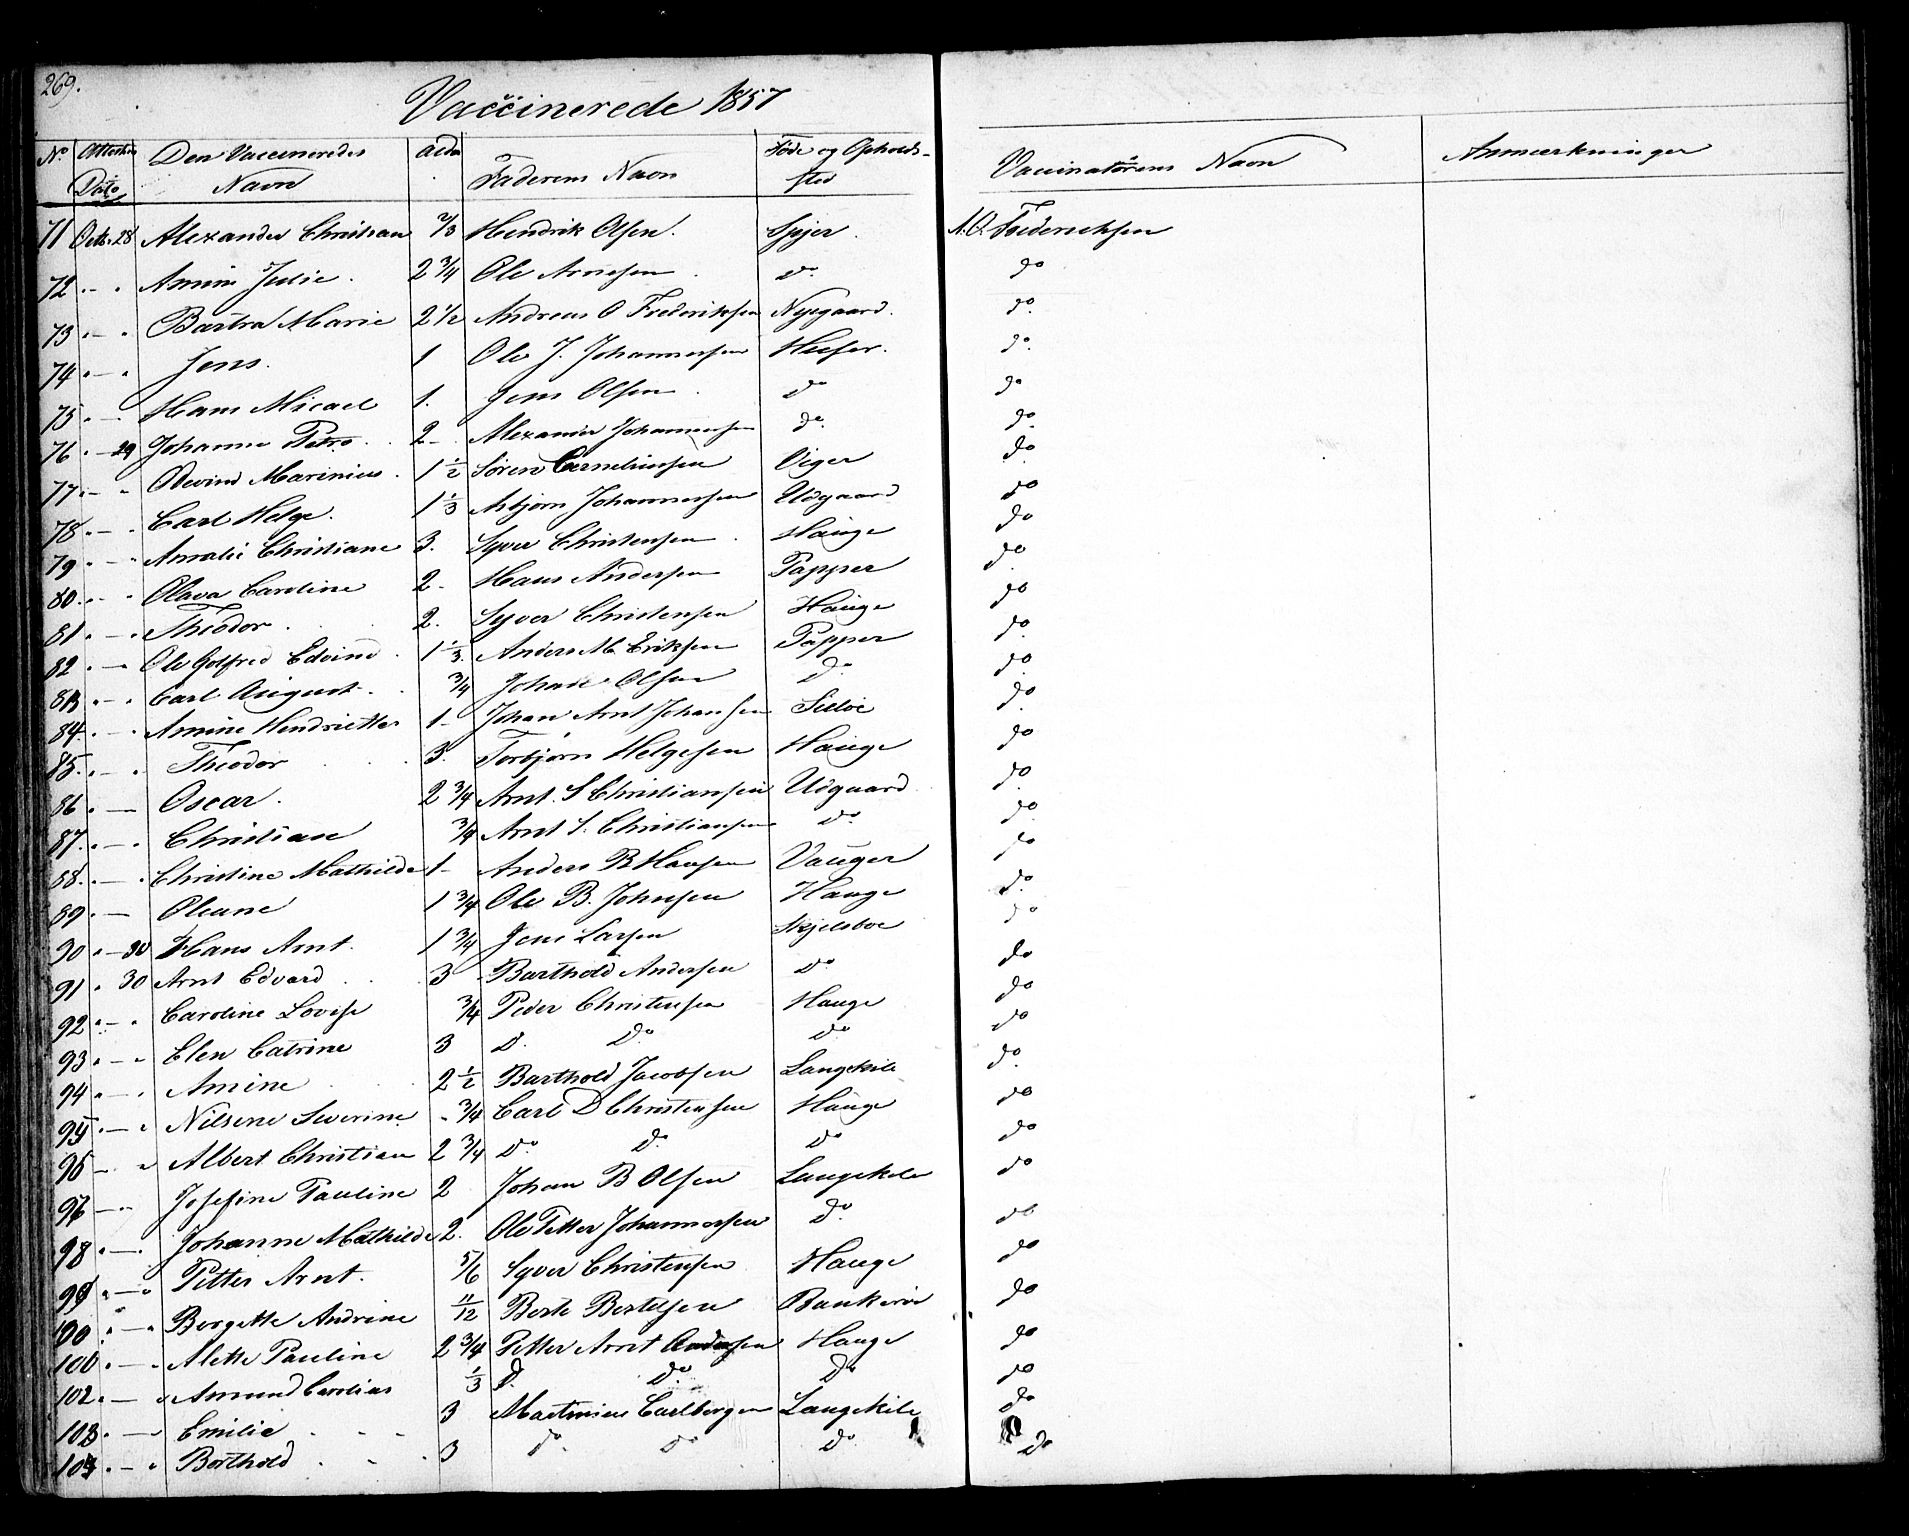 269.
Vaccinerede 1857
No Attestens Dato Den Vaccineredes Navn Alder Faderens Navn Føde og Opholdssted Vaccinatørens Navn Anmærkninger
71 Octb. 28 Alexander Christian 2/3 Hendrik Olsen. Spjer. A. O. Frederichsen
72 " - " Amine Julie. 2 3/4 Ole Arnesen do do
73 " - " Bartra Marie 2 1/2 Andreas O Frederiksen Nyegaard. do.
74 " - " Jens. 1 Ole J. Johannessen Huser. do.
75 " - Hans Micael 1. Jens Olsen do do
76 " - 29 Johanne Petra 2 - Alexander Johannessen do. do.
77 " - " Edevind Marinius. 1 1/2 Søren Corneliussen Viger do.
78 " - " Carl Helge. 1 1/3 Asbjørn Johannessen Udgaard do
79 " - " Amalie Christiane 3. Syver Christensen Hauge do
80 " - " Olava Caroline 2 - Hans Andersen Papper do
81 " - " Theodor 2. Syver Christensen Hauge do
82 " - " Ole Gotfred Edvind 1 1/3. Anders M. Eriksen Papper do.
83 " - " Carl August. 3/4 Johan Olsen do. do.
84. " - " Amine Hendriette 1 - Johan Arnt Johansen do.
85. " - " Theodor 3. Torbjørn Helgesen Hauge do
86 " - Oscar. 2 3/4 Arnt. S Christiansen Udgaard do
87. " - " Christian 3/4 Arnt S. Christiansen do. do
88. " - " Christine Mathilde 1 - Anders B Hansen Vauger do
89 " - Oleane 1 3/4 Ole B. Johnsen Hauge do.
90 " - 30 Hans Arnt. 1 3/4 Jens Larsen Skjelsboe do
91 " 30 Arnt Edvard 3 Barthold Andersen do do
92 " - " Caroline Lovise 3/4 Peder Christensen Hauge do
93 " - " Elen Catrine 3 do. do. do do
94 " - " Amine 2 1/2 Barthold Jacobsen Langekile do.
95 " - " Nilsine Severine. - 3/4 Carl D Christensen Hauge do
96 - " Albert Christian 2 3/4 do do. do do
97 - " Josefine Pauline 2 Johan B Olsen Langekile do
98 " - " Johanne Mathilde 2. Ole Petter Johannessen do. do
99 " - " Petter Arnt. 5/6 Syver Christensen Hauge do
100 " - " Bergette Andrine 11/12 Bertel Bertelsen Bankerød do
101 " - " Alette Pauline 2 3/4 Petter Arnt Andersen Hauge do
102 " - " Amund Carelius 1/3 do. do. do do
103 " - " Emilie 3 Martinius Carlbergen Langekile do
104 " - " Berthold 3 do. do do. do